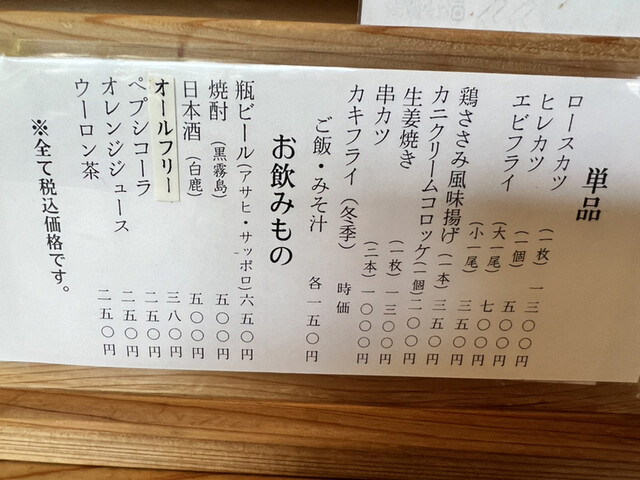 単品
ロースカツ (一枚) 一三〇〇円
ヒレカツ (一個) 五〇〇円
エビフライ (大一尾) 七〇〇円
(小一尾) 三五〇円
鶏ささみ風味揚げ (一本) 三五〇円
カニクリームコロッケ (一個) 二〇〇円
生姜焼き (一枚) 一三〇〇円
串カツ (二本) 一〇〇〇円
カキフライ (冬季) 時価
ご飯・みそ汁 各一五〇円
お飲みもの
瓶ビール (アサヒ・サッポロ) 六五〇円
焼酎 (黒霧島) 五〇〇円
日本酒 (白鹿) 五〇〇円
オールフリー 三八〇円
ペプシコーラ 二五〇円
オレンジジュース 二五〇円
ウーロン茶 二五〇円
※全て税込価格です。